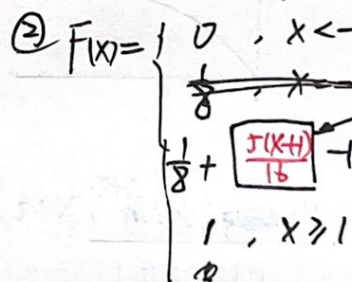 ② F(x) = { 0 , x < -
1/8 , x =
1/8 + 5(x+1)/16 -1
1 , x ≥ 1